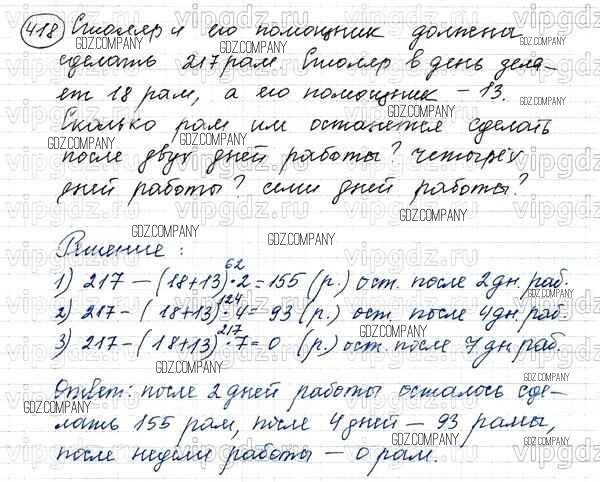 418 Столяр и его помощник должны
сделать 217 рам. Столяр в день дела-
ет 18 рам, а его помощник – 13.
Сколько рам им останется сделать
после двух дней работы? четырёх
дней работы? семи дней работы?
Решение:
62
1) 217 – (18+13)·2=155 (р.) ост. после 2 дн. раб.
124
2) 217 – (18+13)·4= 93 (р.) ост. после 4 дн. раб.
217
3) 217 – (18+13)·7=0 (р.) ост. после 7 дн раб.
Ответ: после 2 дней работы осталось сде-
лать 155 рам, после 4 дней – 93 рамы,
после недели работы – 0 рам.
GDZ.COMPANY
vipgdz.ru